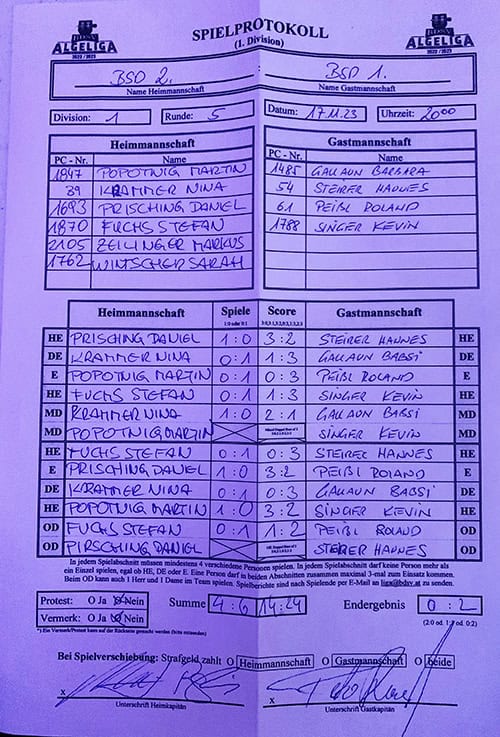 ALGELIGA
2022 / 2023
SPIELPROTOKOLL
(1. Division)
ALGELIGA
2022 / 2023
BSD 2. BSD 1.
Name Heimmannschaft Name Gastmannschaft
Division: 1 Runde: 5 Datum: 17.11.23 Uhrzeit: 20:00
Heimmannschaft Gastmannschaft
PC - Nr. Name PC - Nr. Name
1847 POPOTNIG MARTIN 1485 GALLAUN BARBARA
39 KRAMMER NINA 54 STEIRER HANNES
1693 PRISCHING DANIEL 61 PEIBL ROLAND
1870 FUCHS STEFAN 1788 SINGER KEVIN
2105 ZEILINGER MARKUS
1762 WINTSCHER SARAH
Heimmannschaft Spiele Score Gastmannschaft
1:0 oder 0:1
HE PRISCHING DANIEL 1:0 3:2 STEIRER HANNES HE
DE KRAMMER NINA 0:1 1:3 GALLAUN BABSI DE
E POPOTNIG MARTIN 0:1 0:3 PEIBL ROLAND E
HE FUCHS STEFAN 0:1 1:3 SINGER KEVIN HE
MD KRAMMER NINA 1:0 2:1 GALLAUN BABSI MD
MD POPOTNIG MARTIN SINGER KEVIN MD
HE FUCHS STEFAN 0:1 0:3 STEIRER HANNES HE
E PRISCHING DANIEL 1:0 3:2 PEIBL ROLAND E
DE KRAMMER NINA 0:1 0:3 GALLAUN BABSI DE
HE POPOTNIG MARTIN 1:0 3:2 SINGER KEVIN HE
OD FUCHS STEFAN 0:1 1:2 PEIBL ROLAND OD
OD PIRSCHING DANIEL STEIRER HANNES OD
In jedem Spielabschnitt müssen mindestens 4 verschiedene Personen spielen. In jedem Spielabschnitt darf keine Person mehr als
ein Einzel spielen, egal ob HE, DE oder E. Eine Person darf in beiden Abschnitten zusammen maximal 3-mal zum Einsatz kommen.
Beim OD kann auch 1 Herr und 1 Dame im Team spielen. Spielberichte sind nach Spielende per E-Mail an liga@bdsv.at zu senden.
Protest: O Ja O Nein Summe 4:6 14:24 Endergebnis 0:2
Vermerk: O Ja O Nein (2:0 od. 1:1 od. 0:2)
*) Ein Vermerk/Protest kann auf der Rückseite gemacht werden (bitte ankreuzen)
Bei Spielverschiebung: Strafgeld zahlt O Heimmannschaft O Gastmannschaft O beide
x x
Unterschrift Heimkapitän Unterschrift Gastkapitän